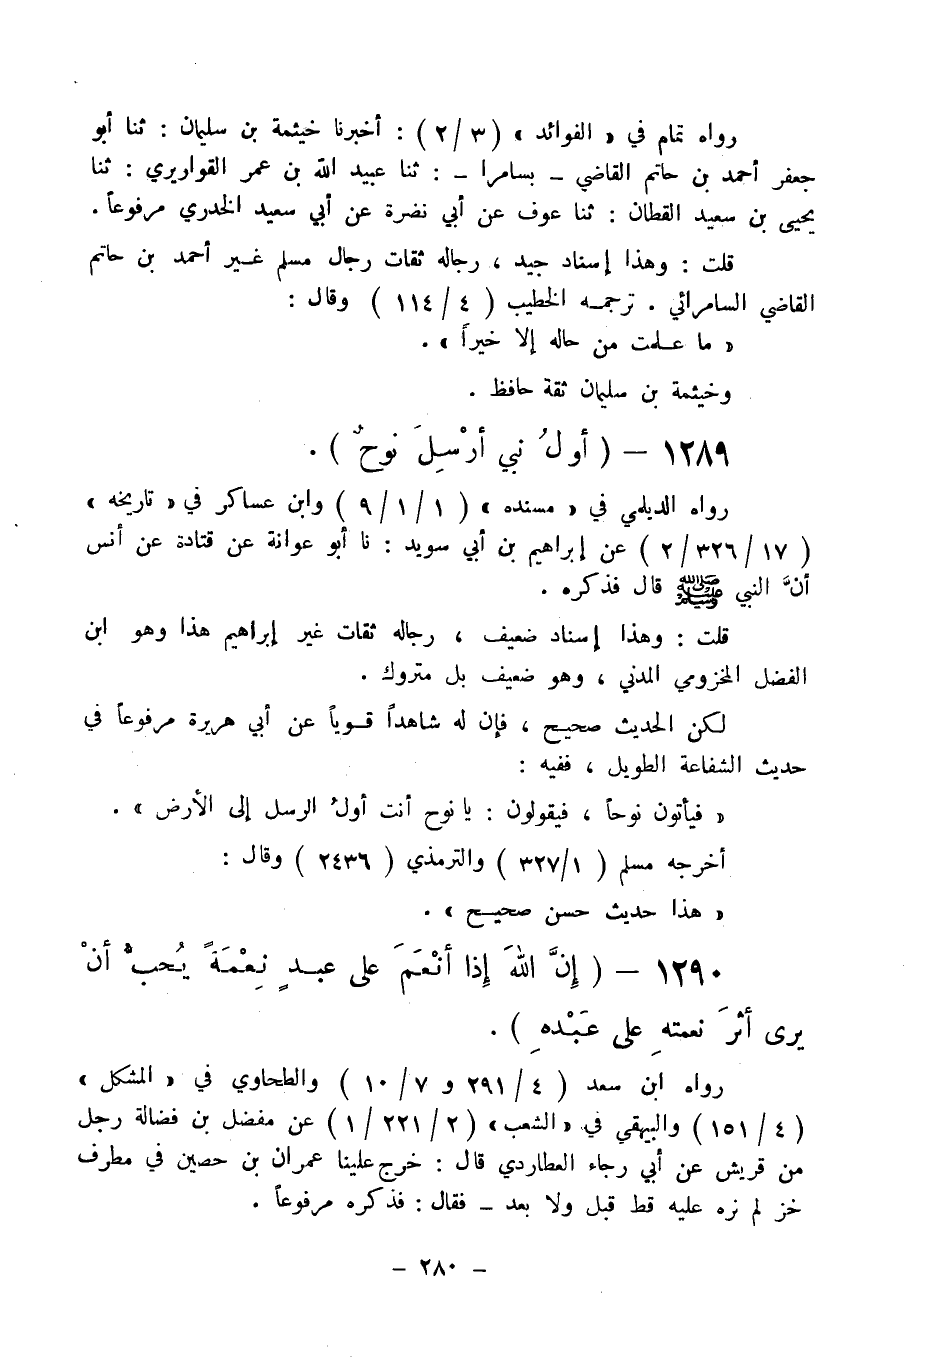 رواه تمام في « الفوائد » ( ٣ / ٢ ) : أخبرنا خيثمة بن سليمان : ثنا أبو
جعفر أحمد بن حاتم القاضي ـ بسامرا ـ : ثنا عبيد الله بن عمر القواريري : ثنا
يحيى بن سعيد القطان : ثنا عوف عن أبي نضرة عن أبي سعيد الخدري مرفوعاً .
قلت : وهذا إسناد جيد ، رجاله ثقات رجال مسلم غير أحمد بن حاتم
القاضي السامرائي . ترجمه الخطيب ( ٤ / ١١٤ ) وقال :
« ما علمت من حاله إلا خيراً » .
وخيثمة بن سليمان ثقة حافظ .
١٢٨٩ – ( أولُ نبي أرْسِلَ نوحٌ ) .
رواه الديلمي في « مسنده » ( ١ / ١ / ٩ ) وابن عساكر في « تاريخه »
( ١٧ / ٣٢٦ / ٢ ) عن إبراهيم بن أبي سويد : نا أبو عوانة عن قتادة عن أنس
أنَّ النبي ﷺ قال فذكره .
قلت : وهذا إسناد ضعيف ، رجاله ثقات غير إبراهيم هذا وهو ابن
الفضل المخزومي المدني ، وهو ضعيف بل متروك .
لكن الحديث صحيح ، فإن له شاهداً قوياً عن أبي هريرة مرفوعاً في
حديث الشفاعة الطويل ، ففيه :
« فيأتون نوحاً ، فيقولون : يا نوح أنت أولُ الرسل إلى الأرض » .
أخرجه مسلم ( ١/ ٣٢٧ ) والترمذي ( ٢٤٣٦ ) وقال :
« هذا حديث حسن صحيح » .
١٢٩٠ – ( إنَّ اللهَ إذا أنْعَمَ على عبدٍ نِعْمَةً يُحبُّ أنْ
يرى أثرَ نعمتهِ على عَبْدهِ ) .
رواه ابن سعد ( ٤ / ٢٩١ و ٧ / ١٠ ) والطحاوي في « المشكل »
( ٤ / ١٥١ ) والبيهقي في « الشعب » ( ٢ / ٢٢١ / ١ ) عن مفضل بن فضالة رجل
من قريش عن أبي رجاء العطاردي قال : خرج علينا عمران بن حصين في مطرف
خز لم نره عليه قط قبل ولا بعد ـ فقال : فذكره مرفوعاً .
– ٢٨٠ –